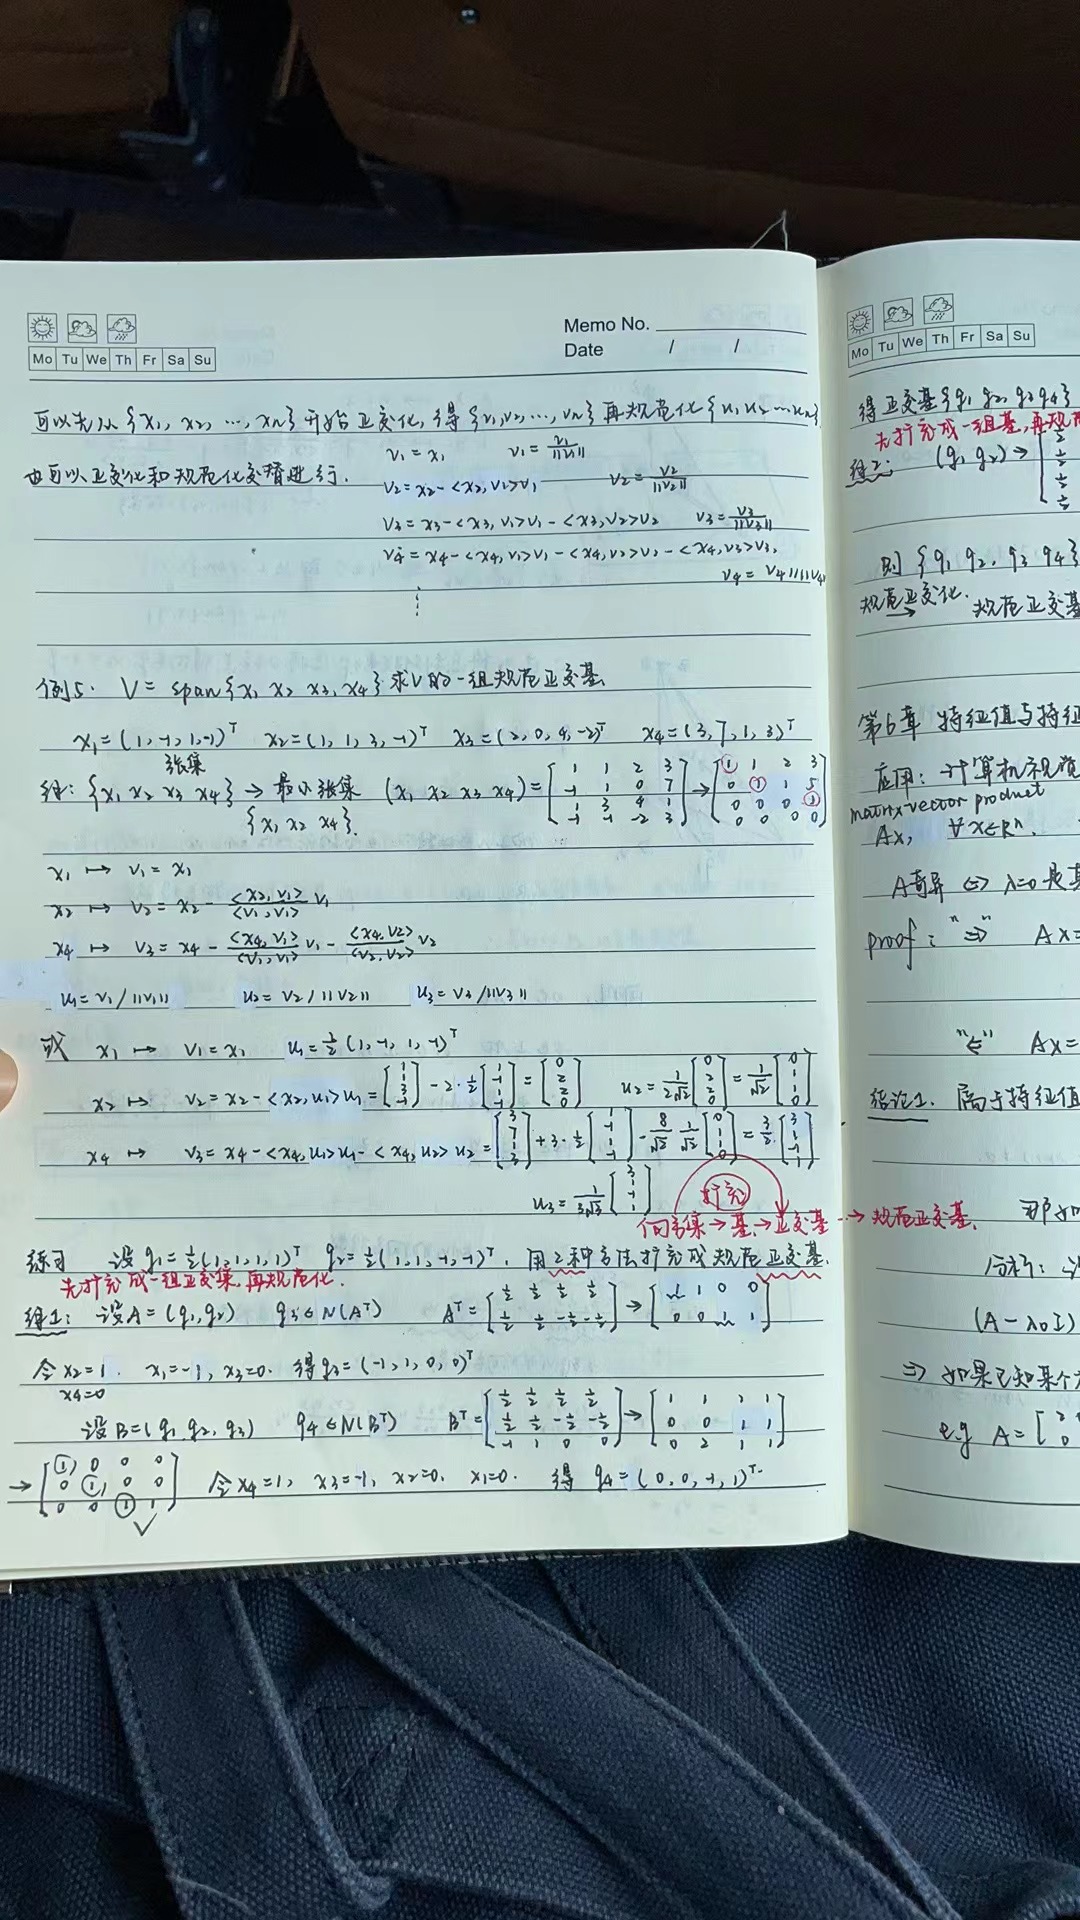 Memo No.
Date / /
Mo Tu We Th Fr Sa Su
可以先从{x₁, x₂, …, xₙ}开始正交化, 得{v₁,v₂,…,vₙ}再规范化{u₁ u₂ … uₙ}
v₁ = x₁ v₁ = v₁/||v₁||
也可以正交化和规范化交替进行.
v₂ = x₂ - <x₂, v₁>v₁ v₂ = v₂/||v₂||
v₃ = x₃ - <x₃, v₁>v₁ - <x₃, v₂>v₂ v₃ = v₃/||v₃||
v₄ = x₄ - <x₄, v₁>v₁ - <x₄, v₂>v₂ - <x₄, v₃>v₃,
v₄ = v₄/||v₄||
⋮
例5. V = span{x₁ x₂ x₃ x₄} 求V的一组规范正交基
x₁ = (1, -1, 1, -1)ᵀ x₂ = (1, 1, 3, -1)ᵀ x₃ = (2, 0, 4, -2)ᵀ x₄ = (3, 7, 1, 3)ᵀ
张集
解: {x₁ x₂ x₃ x₄} → 最小张集 (x₁ x₂ x₃ x₄) = [1 1 2 3; -1 1 0 7; 1 3 4 1; -1 -1 -2 3] → [1 1 2 3; 0 1 1 5; 0 0 0 1; 0 0 0 0]
{x₁ x₂ x₄}.
x₁ ↦ v₁ = x₁
x₂ ↦ v₂ = x₂ - <x₂, v₁>/<v₁, v₁> v₁
x₄ ↦ v₃ = x₄ - <x₄, v₁>/<v₁, v₁> v₁ - <x₄, v₂>/<v₂, v₂> v₂
u₁ = v₁/||v₁|| u₂ = v₂/||v₂|| u₃ = v₃/||v₃||
或 x₁ ↦ v₁ = x₁ u₁ = ½(1, -1, 1, -1)ᵀ
x₂ ↦ v₂ = x₂ - <x₂, u₁>u₁ = [1; 1; 3; -1] - 2·½[1; -1; 1; -1] = [0; 2; 2; 0] u₂ = 1/2√2 [0; 2; 2; 0] = 1/√2 [0; 1; 1; 0]
x₄ ↦ v₃ = x₄ - <x₄, u₁>u₁ - <x₄, u₂>u₂ = [3; 7; 1; 3] + 3·½[1; -1; 1; -1] - 8/√2 1/√2 [0; 1; 1; 0] = 3/2 [3; 1; -1; 1]
u₃ = 1/3√3 [3; 1; -1; 1]
扩充
向量集→基→正交基→规范正交基.
练习 设 q₁ = ½(1, 1, 1, 1)ᵀ q₂ = ½(1, 1, -1, -1)ᵀ. 用2种方法扩充成规范正交基.
先扩充成一组正交集, 再规范化.
解1: 设A = (q₁, q₂) q₃ ∈ N(Aᵀ) Aᵀ = [½ ½ ½ ½; ½ ½ -½ -½] → [1 1 0 0; 0 0 1 1]
令x₂=1. x₁=-1, x₃=0. 得q₃ = (-1, 1, 0, 0)ᵀ
x₄=0
设B = (q₁ q₂, q₃) q₄ ∈ N(Bᵀ) Bᵀ = [½ ½ ½ ½; ½ ½ -½ -½; -1 1 0 0] → [1 1 1 1; 0 0 1 1; 0 2 1 1]
→ [1 0 0 0; 0 1 0 0; 0 0 1 1] 令x₄=1, x₃=-1, x₂=0, x₁=0. 得 q₄ = (0, 0, -1, 1)ᵀ.
Mo Tu We Th Fr Sa Su
得正交基{q₁ q₂ q₃ q₄}
先扩充成一组基, 再规范
解2: (q₁ q₂) →
则 {q₁ q₂, q₃ q₄}
规范正交化. → 规范正交基
第6章 特征值与特征
应用: 计算机视觉
matrix-vector product
Ax, ∀x∈ℝⁿ.
A奇异 ⇔ λ=0 是
proof: "⇒" Ax=
"⇐" Ax=
结论1. 属于特征值
那如
分析:
(A - λ₀I)
⇒ 如果已知某个
e.g. A =